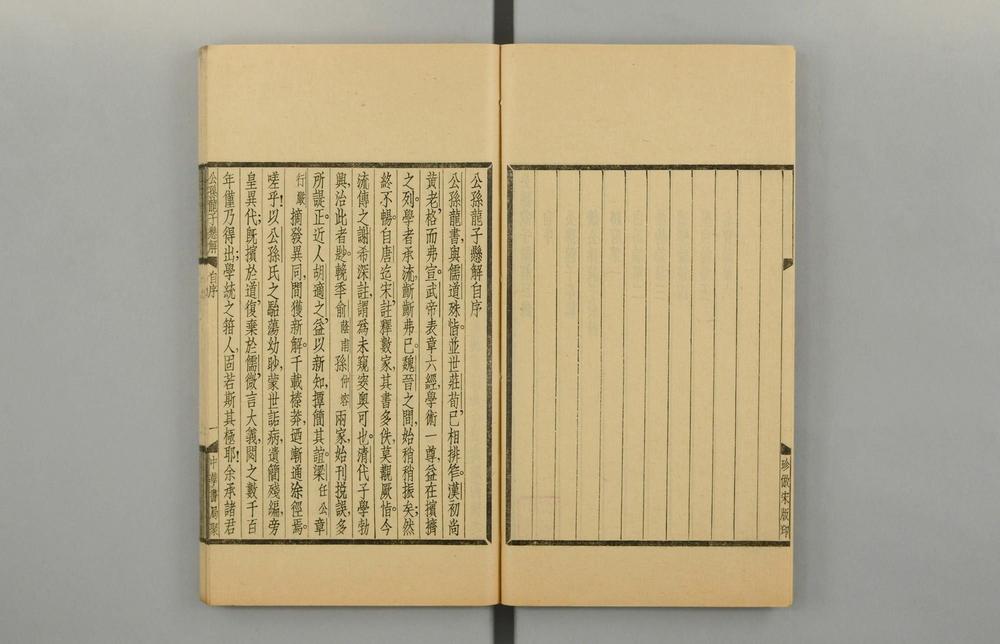 珍倣宋版印
公孫龍子懸解自序
公孫龍書、與儒道殊恉。並世莊荀、已相排笮。漢初尚
黃老、格而弗宣。武帝表章六經、學術一尊、益在擯擠
之列。學者承流、齗齗弗已。魏晉之間、始稍稍振矣；然
終不暢。自唐迄宋、註釋數家、其書多佚、莫覩厥恉。今
流傳之謝希深註、謂爲未窺突奧可也。清代子學勃
興、治此者尠。輓季俞蔭甫孫仲容兩家、始刊挩誤、多
所諟正。近人胡適之、益以新知、撢簡其誼。梁任公章
行嚴摘發異同、間獲新解。千載榛莽、迺漸通涂徑焉。
嗟乎！以公孫氏之融蕩幼眇、蒙世詬病、遺簡殘編、旁
皇異代；既擯於道、復棄於儒、微言大義、閟之數千百
年、僅乃得出；學統之箝人、固若斯其極耶！余承諸君
公孫龍子懸解 自序 一 中華書局聚